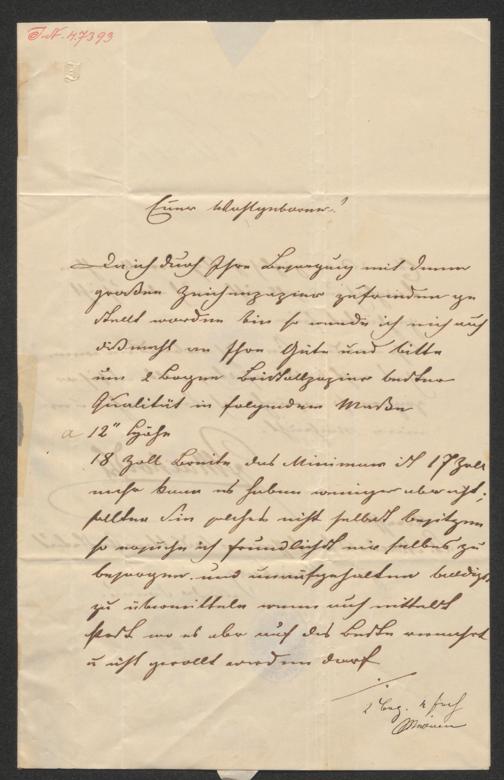 J.N. 47393
Euer Wohlgeboren!
Da ich durch Ihre Besorgung mit dem
großen Zeichenpapier zufrieden ge
stellt worden bin so wende ich mich auch
dießmahl an Ihre Güte und bitte
um 2 Bogen Bristollpapier bester
Qualität in folgendem Maße
a 12" Höhe
18 Zoll Breite das Minimum ist 17 Zoll
mehr kann es haben weniger aber nicht;
sollten Sie solches nicht selbst besitzen
so ersuche ich freundlichst mir selbes zu
besorgen und unaufgehalten baldigst
zu übermitteln wenn auch mittelst
Post wo es aber auf das Beste verwahrt
u nicht gerollt werden darf
2 Bog. 4 fach